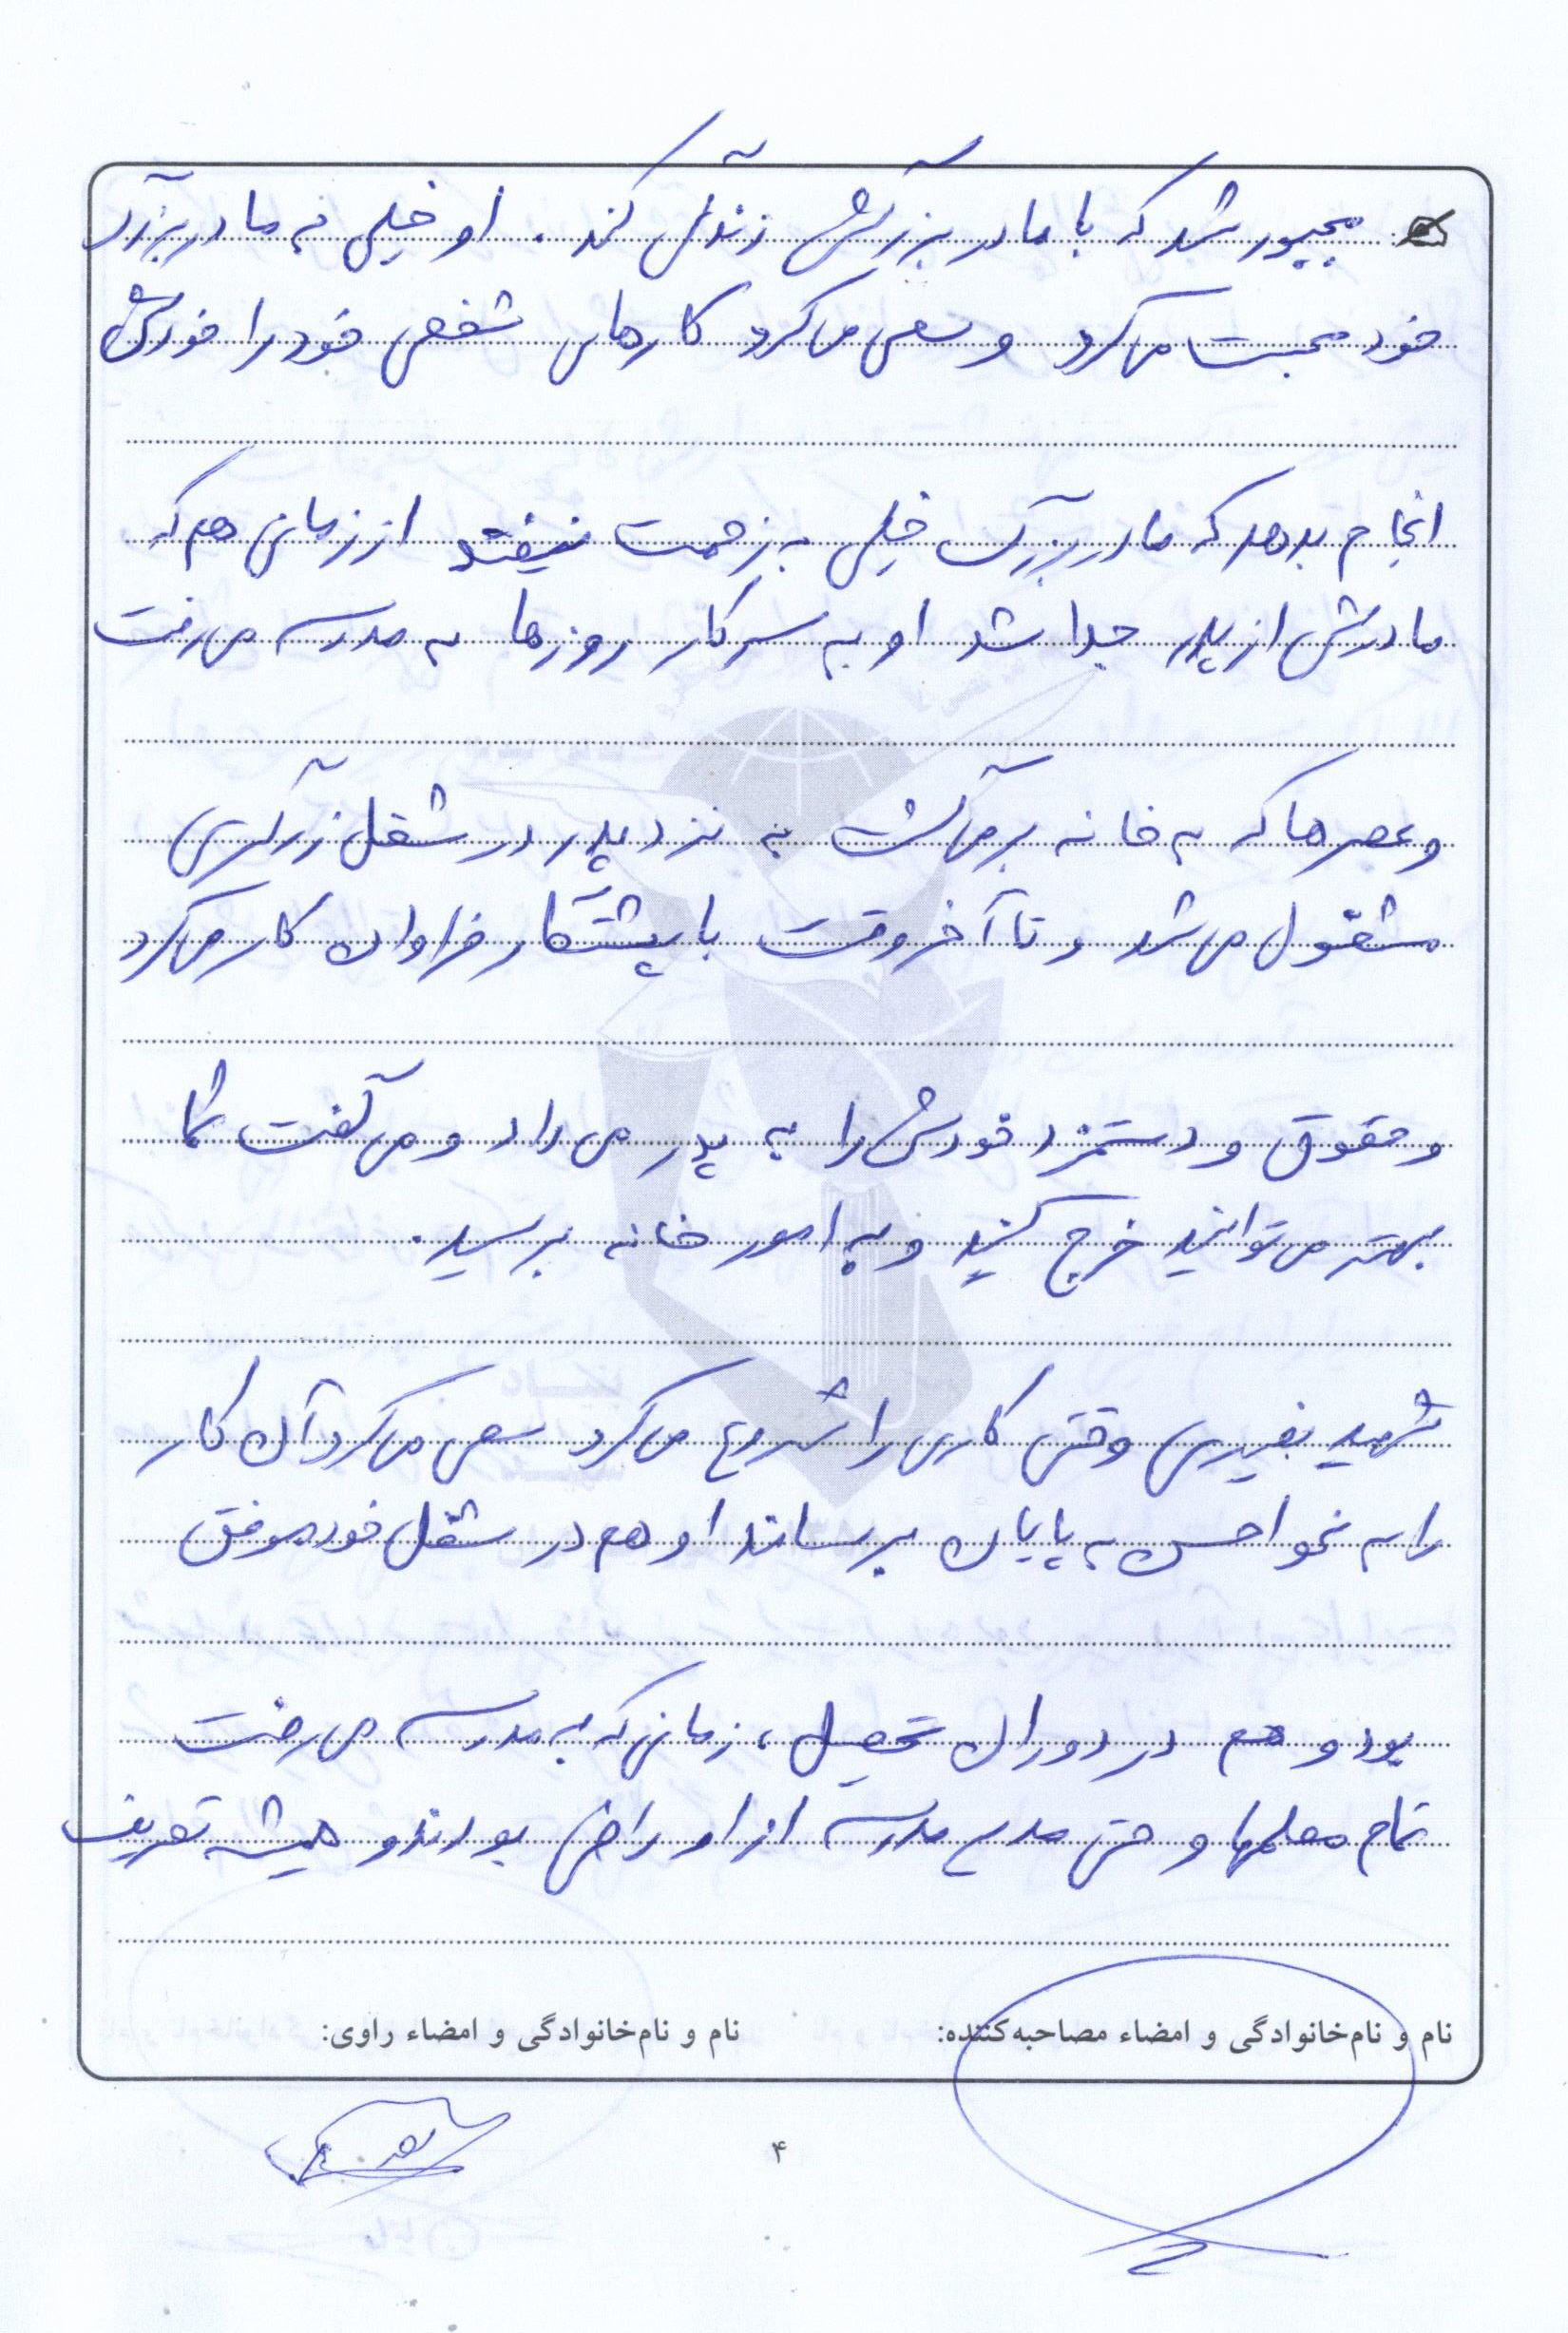 مجبور شد که با مادر بزرگش زندگی کند. او خیلی به مادر بزرگ
خود محبت می‌کرد و سعی می‌کرد کارهای شخصی خود را خودش
انجام بدهد که مادر بزرگ خیلی به زحمت نیفتد از زمانی هم که
مادرش از پدر جدا شد او به سر کار روزها به مدرسه می‌رفت
و عصرها که به خانه برمی‌گشت به نزد پدر در شغل زرگری
مشغول می‌شد و تا آخر وقت با پشتکار فراوان کار می‌کرد
و حقوق و دستمزد خودش را به پدر می‌داد و می‌گفت شما
بهتر می‌توانید خرج کنید و به امور خانه برسید.
شهید نصیری وقتی کاری را شروع می‌کرد سعی می‌کرد آن کار
را به نحو احسن به پایان برساند او هم در شغل خود موفق
بود و هم در دوران تحصیل، زمانی که به مدرسه می‌رفت
تمام معلمها و حتی مدیر مدرسه از او راضی بودند و همیشه تعریف
نام و نام‌خانوادگی و امضاء مصاحبه‌کننده: نام و نام‌خانوادگی و امضاء راوی:
۴